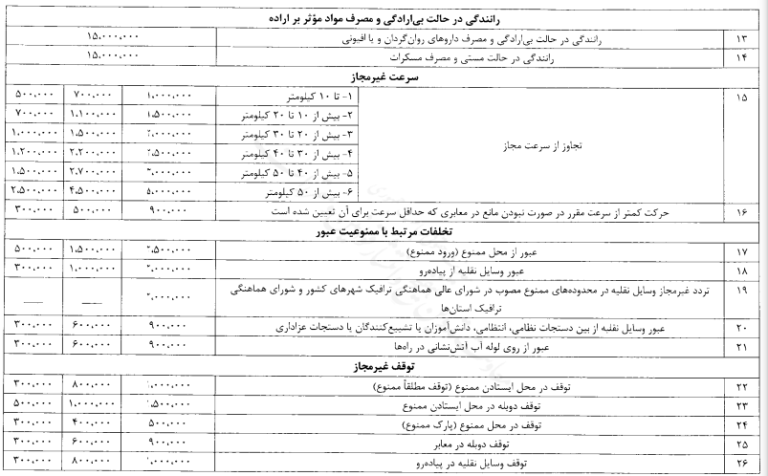 رانندگی در حالت بی‌ارادگی و مصرف مواد مؤثر بر اراده
۱۳ رانندگی در حالت بی‌ارادگی و مصرف داروهای روان‌گردان و یا افیونی ۱۵,۰۰۰,۰۰۰
۱۴ رانندگی در حالت مستی و مصرف مسکرات ۱۵,۰۰۰,۰۰۰
سرعت غیرمجاز
۱۵ تجاوز از سرعت مجاز
۱- تا ۱۰ کیلومتر ۱,۰۰۰,۰۰۰ ۷۰۰,۰۰۰ ۵۰۰,۰۰۰
۲- بیش از ۱۰ تا ۲۰ کیلومتر ۱,۵۰۰,۰۰۰ ۱,۱۰۰,۰۰۰ ۷۰۰,۰۰۰
۳- بیش از ۲۰ تا ۳۰ کیلومتر ۱,۵۰۰,۰۰۰ ۱,۰۰۰,۰۰۰
۴- بیش از ۳۰ تا ۴۰ کیلومتر ۲,۲۰۰,۰۰۰ ۱,۲۰۰,۰۰۰
۵- بیش از ۴۰ تا ۵۰ کیلومتر ۲,۷۰۰,۰۰۰ ۱,۵۰۰,۰۰۰
۶- بیش از ۵۰ کیلومتر ۵,۰۰۰,۰۰۰ ۴,۵۰۰,۰۰۰ ۲,۵۰۰,۰۰۰
۱۶ حرکت کمتر از سرعت مقرر در صورت نبودن مانع در معابری که حداقل سرعت برای آن تعیین شده است ۹۰۰,۰۰۰ ۵۰۰,۰۰۰ ۳۰۰,۰۰۰
تخلفات مرتبط با ممنوعیت عبور
۱۷ عبور از محل ممنوع (ورود ممنوع) ۱,۵۰۰,۰۰۰ ۵۰۰,۰۰۰
۱۸ عبور وسایل نقلیه از پیاده‌رو ۱,۰۰۰,۰۰۰ ۳۰۰,۰۰۰
۱۹ تردد غیرمجاز وسایل نقلیه در محدوده‌های ممنوع مصوب در شورای عالی هماهنگی ترافیک شهرهای کشور و شورای هماهنگی
ترافیک استان‌ها
۲۰ عبور وسایل نقلیه از بین دستجات نظامی، انتظامی، دانش‌آموزان یا تشییع‌کنندگان یا دستجات عزاداری ۹۰۰,۰۰۰ ۶۰۰,۰۰۰ ۳۰۰,۰۰۰
۲۱ عبور از روی لوله آب آتش‌نشانی در راه‌ها ۹۰۰,۰۰۰ ۶۰۰,۰۰۰ ۳۰۰,۰۰۰
توقف غیرمجاز
۲۲ توقف در محل ایستادن ممنوع (توقف مطلقاً ممنوع) ۸۰۰,۰۰۰ ۳۰۰,۰۰۰
۲۳ توقف دوبله در محل ایستادن ممنوع ۱,۰۰۰,۰۰۰ ۵۰۰,۰۰۰
۲۴ توقف در محل ممنوع (پارک ممنوع) ۵۰۰,۰۰۰ ۴۰۰,۰۰۰ ۳۰۰,۰۰۰
۲۵ توقف دوبله در معابر ۹۰۰,۰۰۰ ۶۰۰,۰۰۰ ۳۰۰,۰۰۰
۲۶ توقف وسایل نقلیه در پیاده‌رو ۸۰۰,۰۰۰ ۳۰۰,۰۰۰